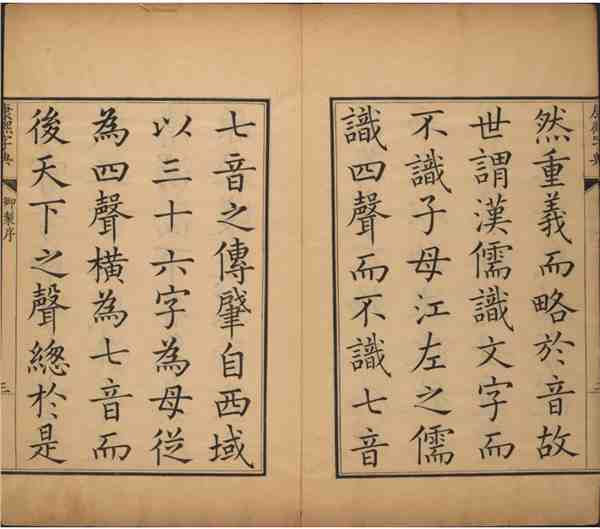 然重義而略於音故
世謂漢儒識文字而
不識子母江左之儒
識四聲而不識七音
七音之傳肈自西域
以三十六字為母從
為四聲橫為七音而
後天下之聲緫於是
康熙字典 御製序 三